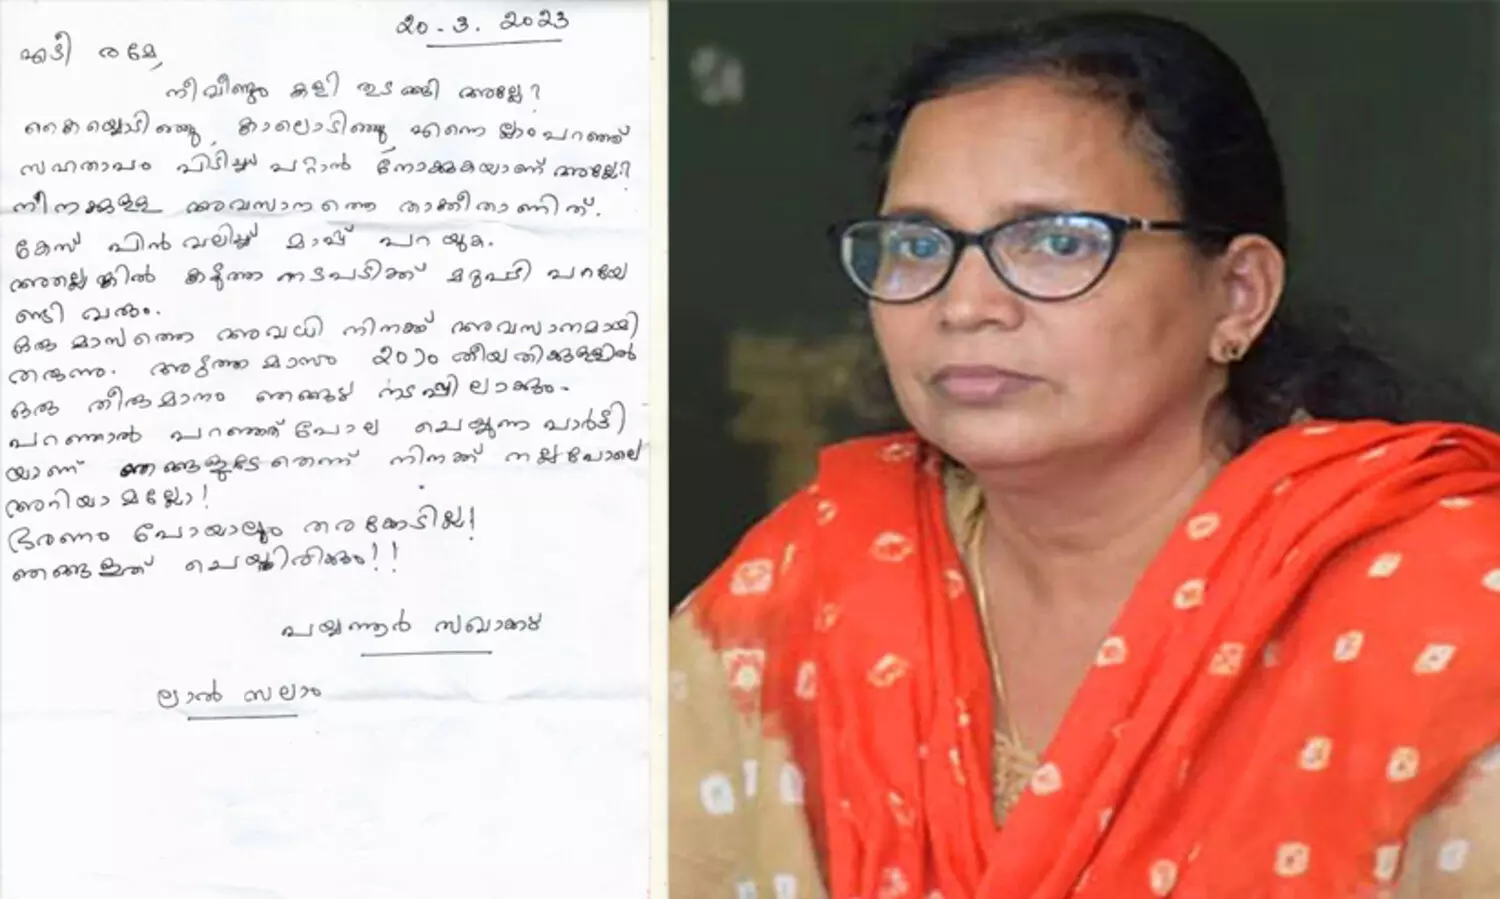 20-3. 2023
എടീ രമേ,
നീ വീണ്ടും കളി തുടങ്ങി അല്ലേ?
കൈയ്യൊടിഞ്ഞു, കാലൊടിഞ്ഞു എന്നെല്ലാം പറഞ്ഞ്
സഹതാപം പിടിച്ചു പറ്റാൻ നോക്കുകയാണ് അല്ലേ?
നിനക്കുള്ള അവസാനത്തെ താക്കീതാണിത്.
കേസ് പിൻവലിച്ച് മാപ്പ് പറയുക.
അല്ലെങ്കിൽ കടുത്ത നടപടിക്ക് മറുപടി പറയേ
ണ്ടി വരും.
ഒരു മാസത്തെ അവധി നിനക്ക് അവസാനമായി
തരുന്നു. അടുത്ത മാസം 20ാം തീയതിക്കുള്ളിൽ
ഒരു തീരുമാനം ഞങ്ങൾ നടപ്പിലാക്കും.
പറഞ്ഞാൽ പറഞ്ഞത് പോലെ ചെയ്യുന്ന പാർട്ടി
യാണ് ഞങ്ങളുടേതെന്ന് നിനക്ക് നല്ലപോലെ
അറിയാമല്ലോ!
ഭരണം പോയാലും തരക്കേടില്ല!
ഞങ്ങളിത് ചെയ്തിരിക്കും!!
പയ്യന്നൂർ സഖാക്കൾ
ലാൽ സലാം